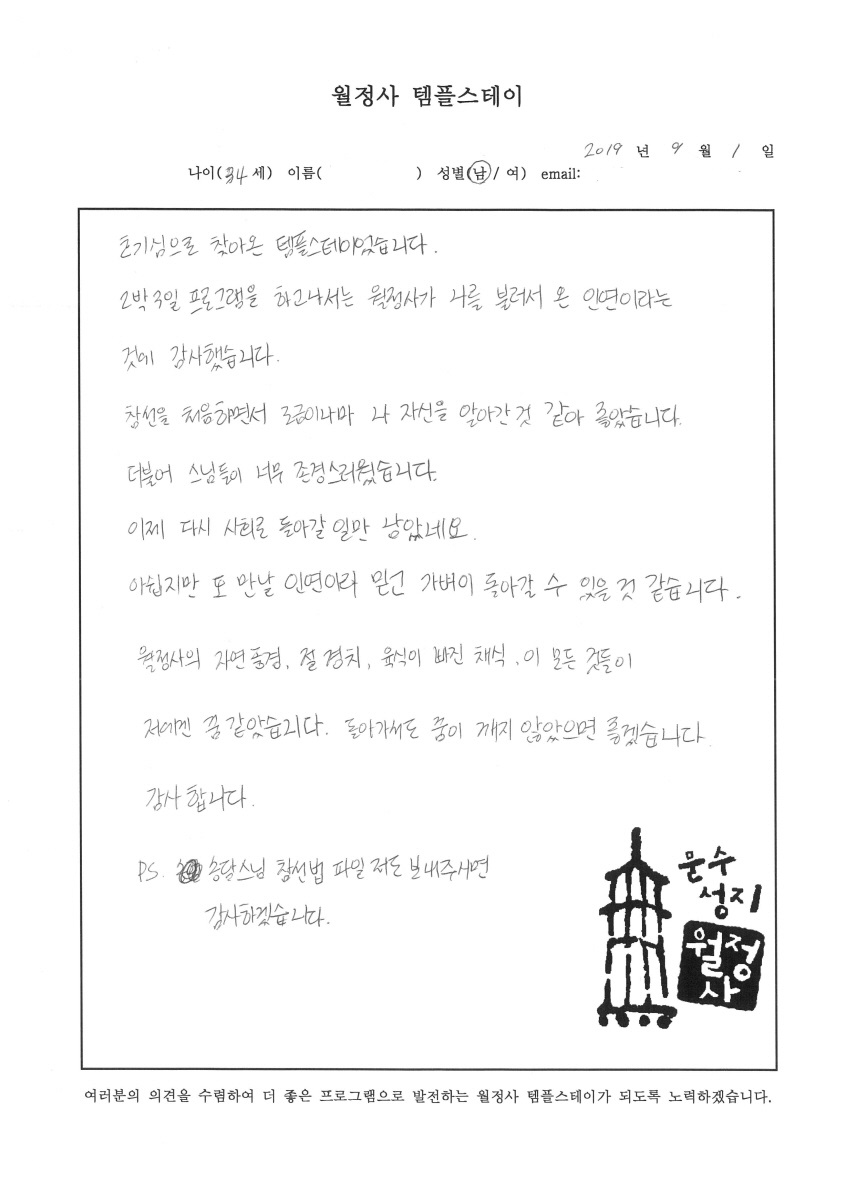 월정사 템플스테이
2019 년 9 월 1 일
나이(34세) 이름( ) 성별(남/여) email:
호기심으로 찾아온 템플스테이었습니다.
2박3일 프로그램을 하고나서는 월정사가 나를 불러서 온 인연이라는
것에 감사했습니다.
참선을 처음하면서 조금이나마 나 자신을 알아간것 같아 좋았습니다.
더불어 스님들이 너무 존경스러웠습니다.
이제 다시 사회로 돌아갈 일만 남았네요.
아쉽지만 또 만날 인연이라 믿고 가벼이 돌아갈 수 있을것 같습니다.
월정사의 자연풍경, 절 경치, 육식이 빠진 채식, 이 모든 것들이
저에겐 꿈같았습니다. 돌아가서도 꿈이 깨지 않았으면 좋겠습니다
감사합니다.
PS. 송담스님 참선법 파일 저도 보내주시면
감사하겠습니다.
문수
성지
월정
사
여러분의 의견을 수렴하여 더 좋은 프로그램으로 발전하는 월정사 템플스테이가 되도록 노력하겠습니다.